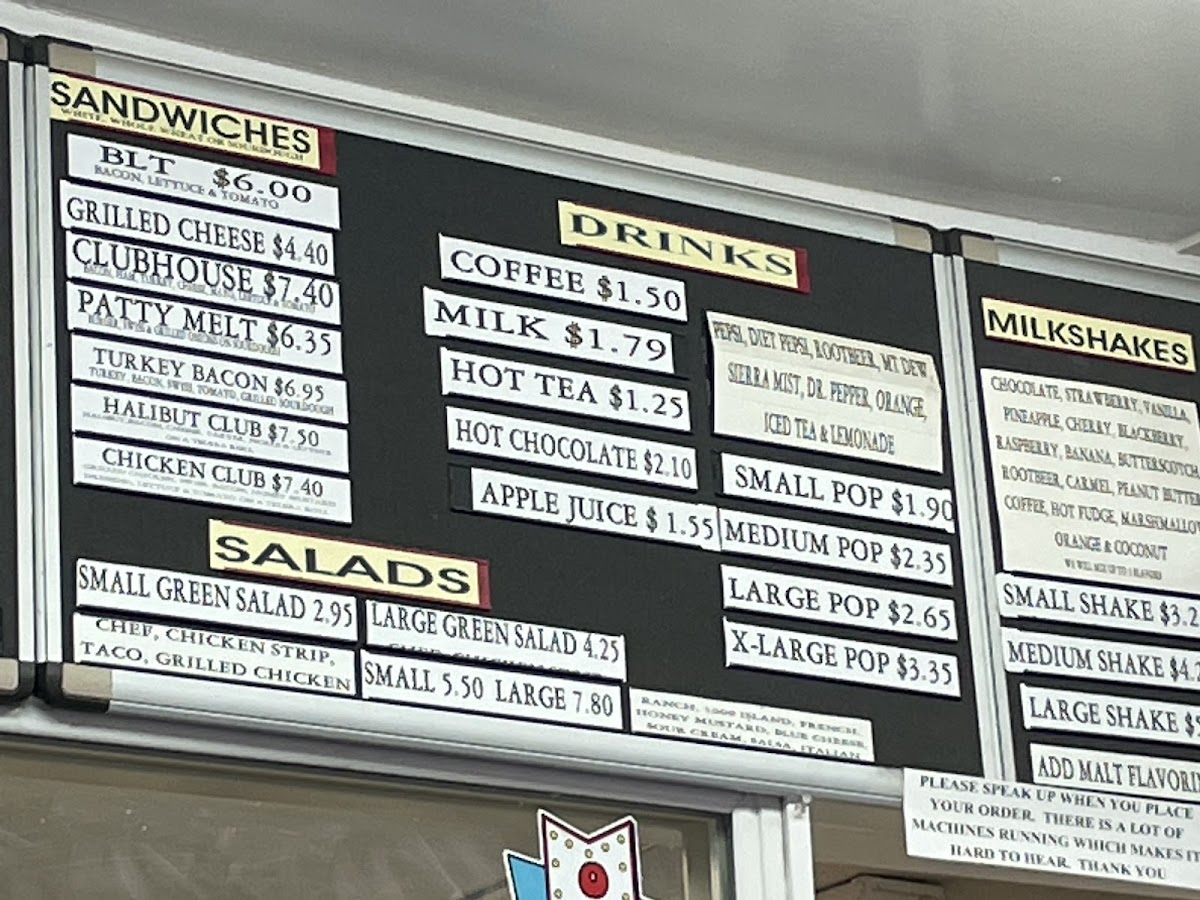 SANDWICHES
WHITE, WHOLE WHEAT OR SOURDOUGH
BLT $6.00
BACON, LETTUCE & TOMATO
GRILLED CHEESE $4.40
CLUBHOUSE $7.40
BACON, HAM, TURKEY, CHEESE, MAYO, LETTUCE & TOMATO
PATTY MELT $6.35
BURGER, SWISS & GRILLED ONIONS ON SOURDOUGH
TURKEY BACON $6.95
TURKEY, BACON, SWISS, TOMATO, GRILLED SOURDOUGH
HALIBUT CLUB $7.50
CHICKEN CLUB $7.40
SALADS
SMALL GREEN SALAD 2.95
LARGE GREEN SALAD 4.25
CHEF, CHICKEN STRIP,
TACO, GRILLED CHICKEN
SMALL 5.50 LARGE 7.80
RANCH, 1000 ISLAND, FRENCH,
HONEY MUSTARD, BLUE CHEESE,
SOUR CREAM, SALSA, ITALIAN
DRINKS
COFFEE $1.50
MILK $1.79
HOT TEA $1.25
HOT CHOCOLATE $2.10
APPLE JUICE $ 1.55
PEPSI, DIET PEPSI, ROOTBEER, MT DEW
SIERRA MIST, DR. PEPPER, ORANGE,
ICED TEA & LEMONADE
SMALL POP $1.90
MEDIUM POP $2.35
LARGE POP $2.65
X-LARGE POP $3.35
MILKSHAKES
CHOCOLATE, STRAWBERRY, VANILLA,
PINEAPPLE, CHERRY, BLACKBERRY,
RASPBERRY, BANANA, BUTTERSCOTCH,
ROOTBEER, CARMEL, PEANUT BUTTE
COFFEE, HOT FUDGE, MARSHMALLO
ORANGE & COCONUT
WE WILL MIX UP TO 3 FLAVORS
SMALL SHAKE $3.2
MEDIUM SHAKE $4.
LARGE SHAKE $
ADD MALT FLAVORIN
PLEASE SPEAK UP WHEN YOU PLACE
YOUR ORDER. THERE IS A LOT OF
MACHINES RUNNING WHICH MAKES IT
HARD TO HEAR. THANK YOU